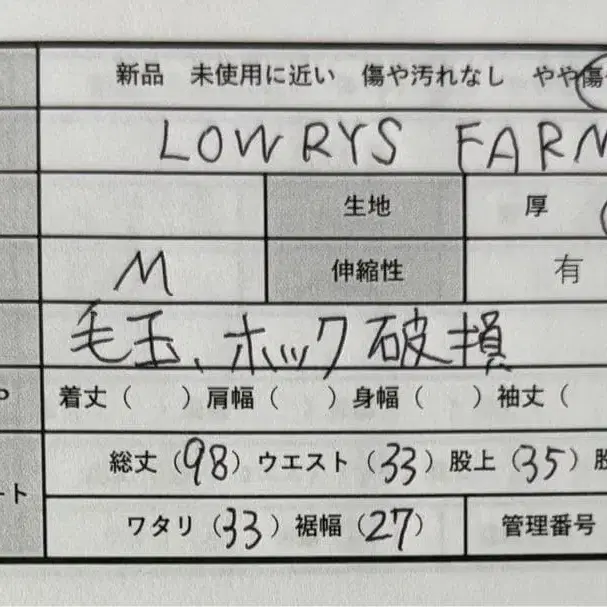 新品 未使用に近い 傷や汚れなし やや傷
LOWRYS FARM
生地 厚
M 伸縮性 有
毛玉、ホック破損
着丈( )肩幅( )身幅( )袖丈(
総丈(98)ウエスト(33)股上(35)股
ート
ワタリ(33)裾幅(27) 管理番号